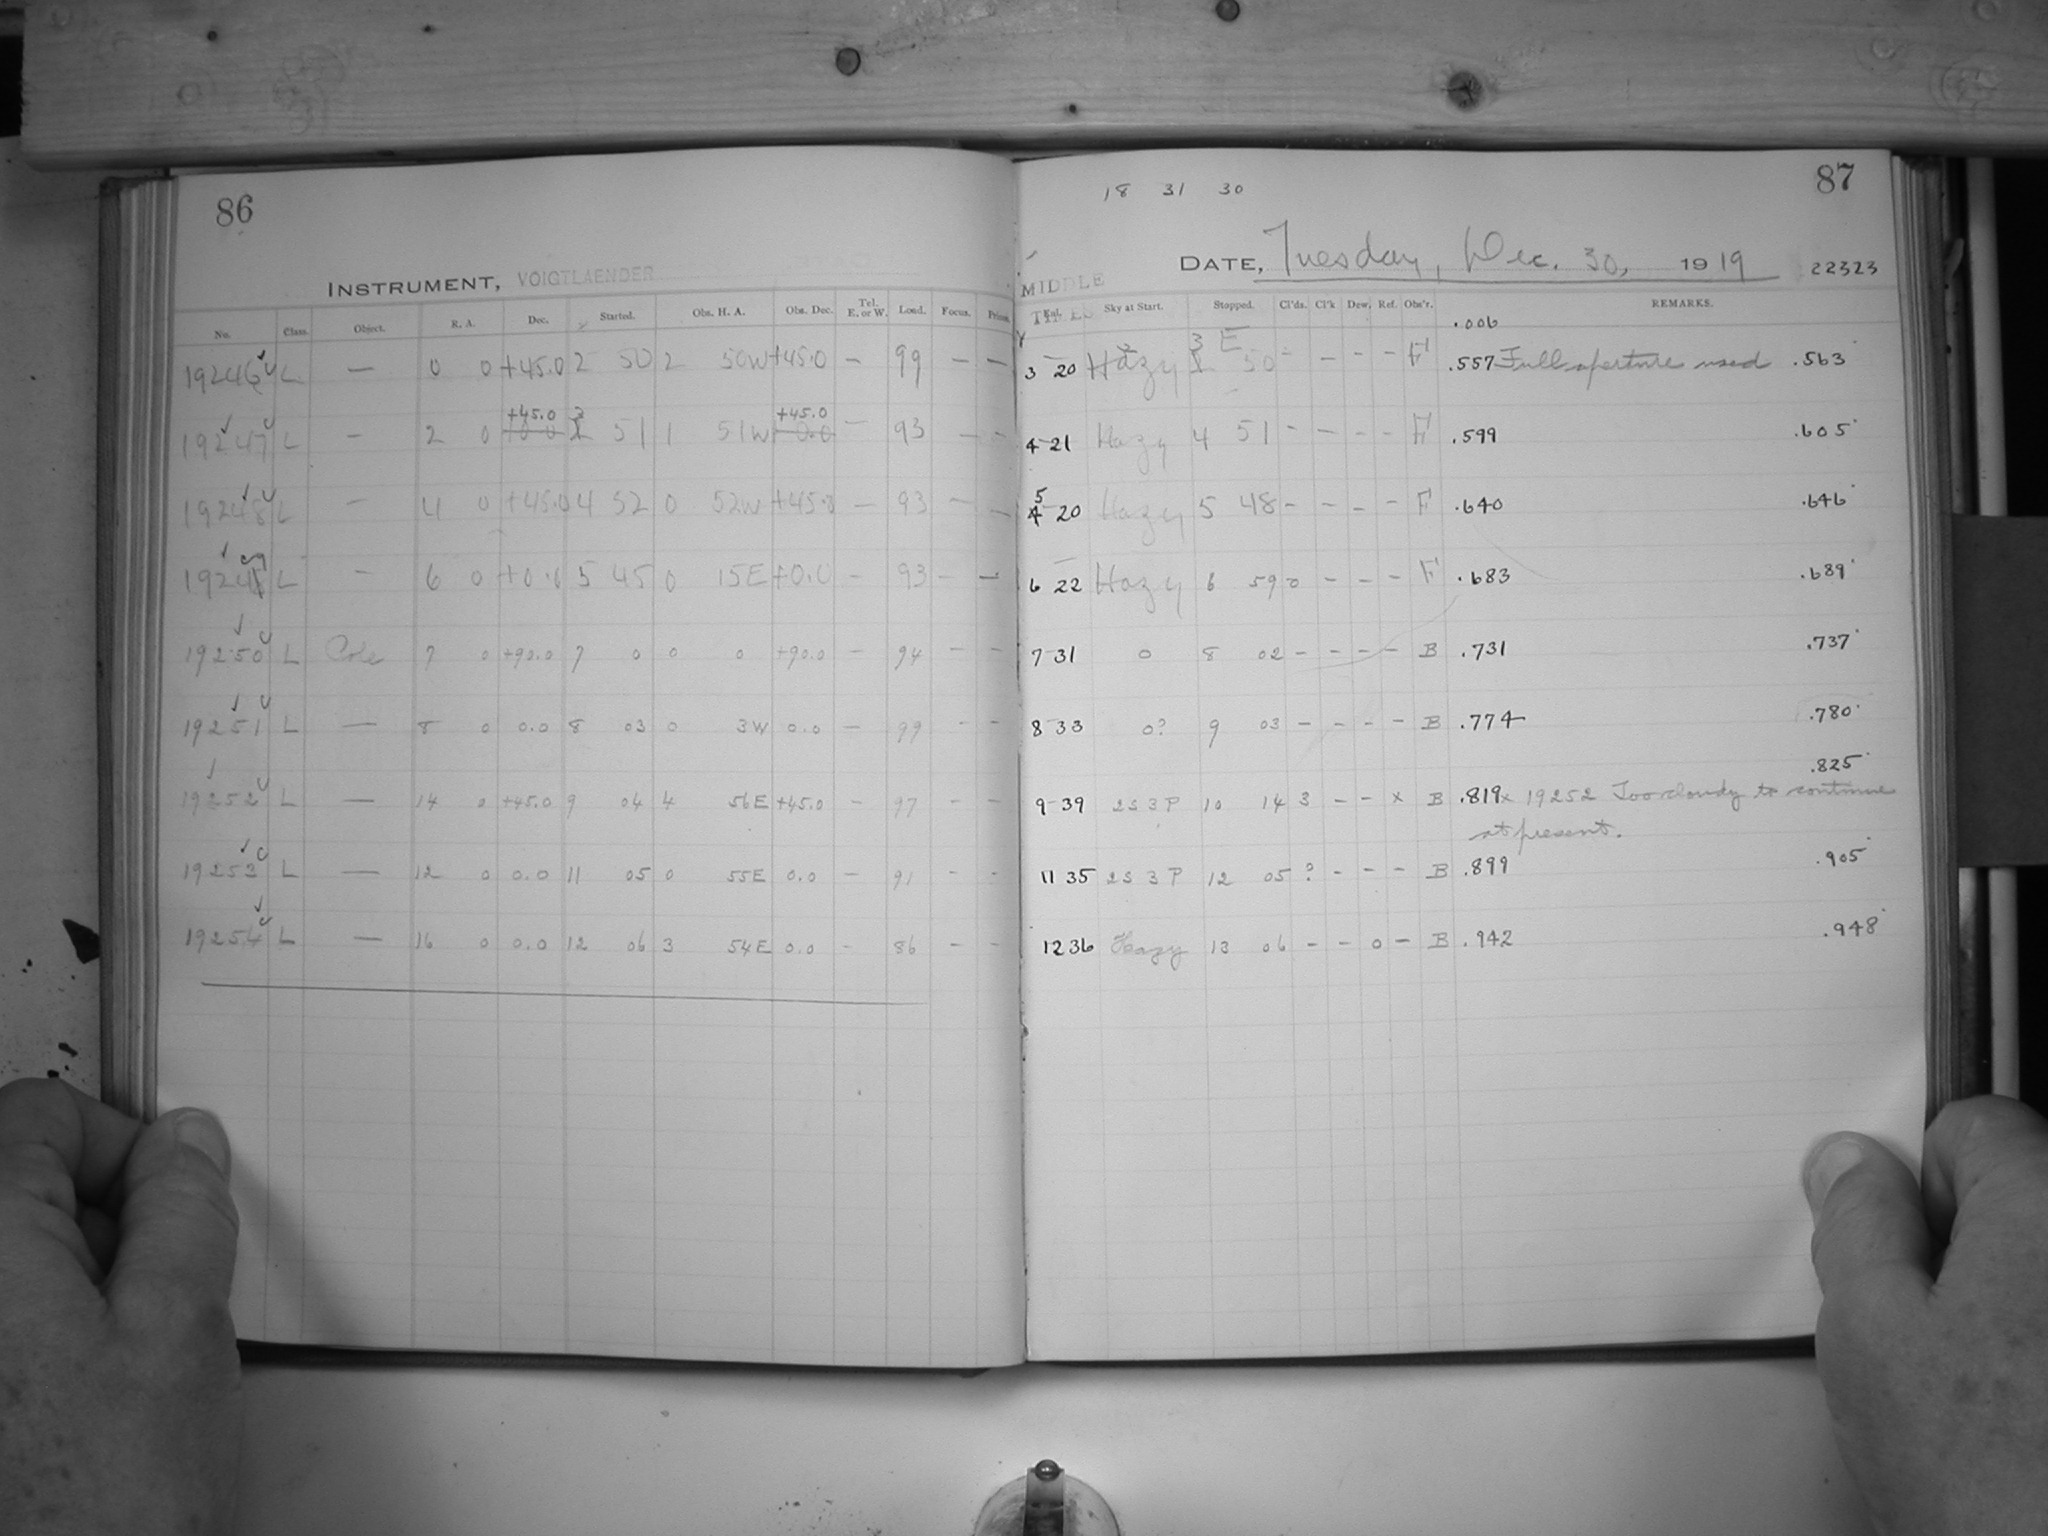 86
INSTRUMENT, VOIGTLAENDER
No. Class. Object. R. A. Dec. Started. Obs. H. A. Obs. Dec. Tel. E. or W. Load. Focus. Prism.
19246 L — 0 0 +45.0 2 50 2 50W +45.0 — 99 — —
+45.0 3 +45.0
19247 L — 2 0 51 1 51W — 93 — —
19248 L — 4 0 +45.0 4 52 0 52W +45.0 — 93 — —
19249 L — 6 0 +0.0 5 45 0 15E +0.0 — 93 — —
19250 L Pole 7 0 +90.0 7 0 0 0 +90.0 — 94 — —
19251 L — 8 0 0.0 8 03 0 3W 0.0 — 99 - -
19252 L — 14 0 +45.0 9 04 4 56E +45.0 — 97 - -
19253 L — 12 0 0.0 11 05 0 55E 0.0 — 91 - -
19254 L — 16 0 0.0 12 06 3 54E 0.0 - 86 - -
18 31 30
87
DATE, Tuesday, Dec. 30, 1919 22323
MIDDLE
TIMES
Sky at Start. Stopped. Cl'ds. Cl'k Dew. Ref. Obs'r. REMARKS.
.006
3 E
3 20 Hazy 50 - - - - F .557 Full aperture used .563
4 21 Hazy 4 51 - - - - F .599 .605
5
20 Hazy 5 48 - - - - F .640 .646
6 22 Hazy 6 59 0 - - - F .683 .689
7 31 0 8 02 - - - - B .731 .737
8 33 0? 9 03 - - - - B .774 .780
.825
9 39 2S 3P 10 14 3 - - x B .819 x 19252 Too cloudy to continue
at present.
11 35 2S 3P 12 05 ? - - - B .899 .905
12 36 Hazy 13 06 - - 0 - B .942 .948